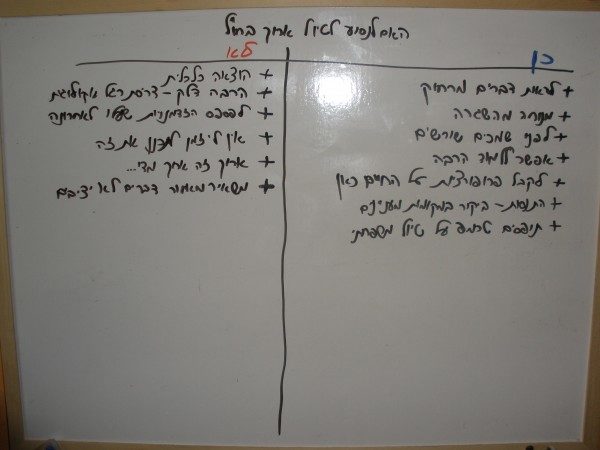 האם לנסוע לטיול ארוך בחו"ל
כן
+ לראות דברים מרחוק
+ מנוחה מהשגרה
+ לפני שמכים שורשים
+ אפשר ללמוד הרבה
+ לקבל פרופורציות על החיים כאן
+ התנסות - ביקור במקומות מעניינים
+ תופסים טרמפ על טיול משפחתי
לא
+ הוצאה כלכלית
+ הרבה דלק - דריסת רגל אקולוגית
+ לפספס הזדמנויות שצצו לאחרונה
+ אין לי זמן לתכנן את זה
+ ארוך זה ארוך מדי...
+ משאיר מאחור דברים לא יציבים